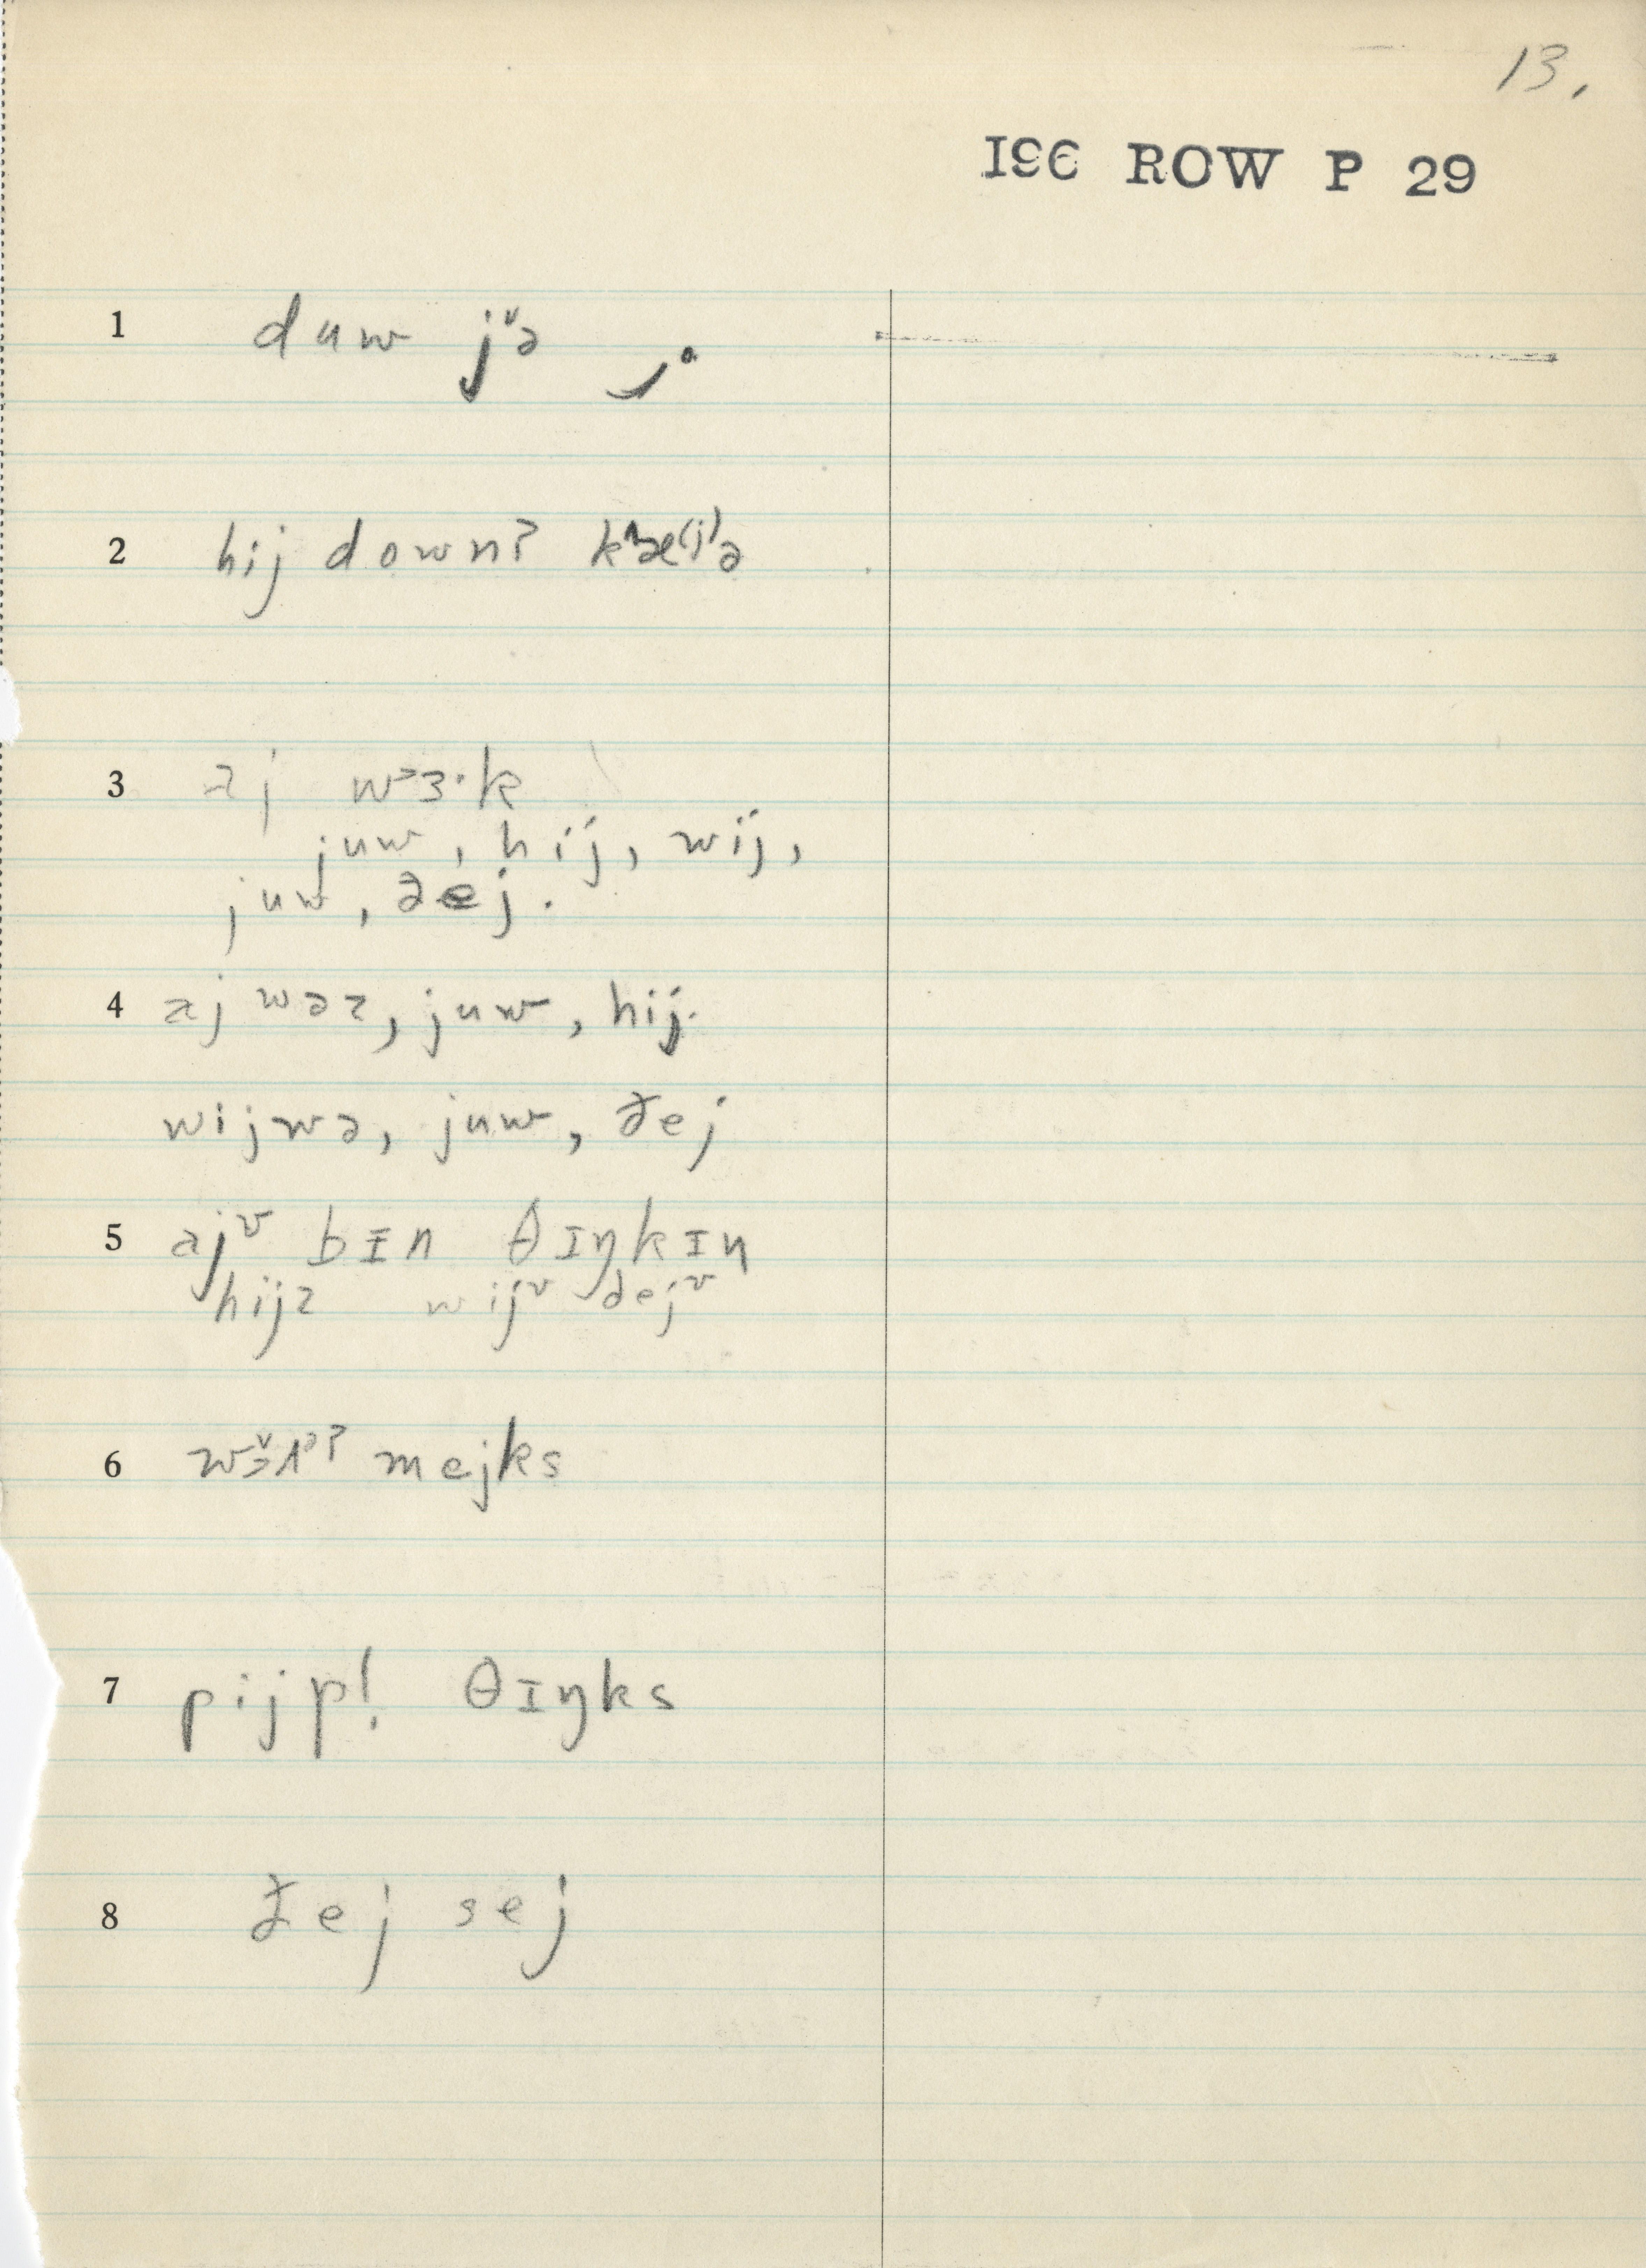 13.
196 ROW P 29
1 duw jᵛə
2 hij down? kʰæ⁽ʲ⁾ə
3 aj wᵊɜ·k
juw, hij, wij,
juw, ðej.
4 aj wəz, juw, hij.
wijwə, juw, ðej
5 ajᵛ bɪn θɪŋkɪŋ
hijz wijᵛ ðejᵛ
6 mejks
7 pijp! θɪŋks
8 ðej sej